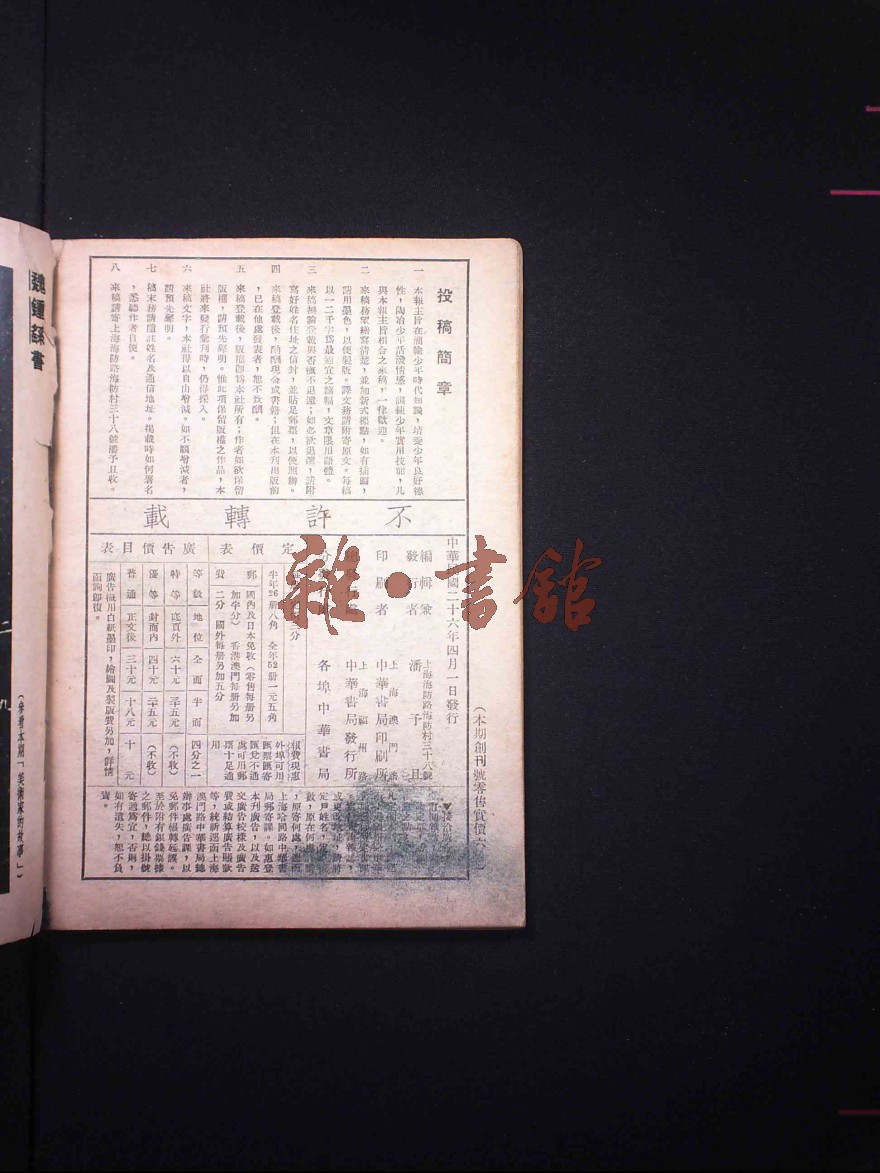 投稿簡章
一 本報主旨在灌輸少年時代知識，培養少年良好德
性，陶冶少年活潑情感，訓練少年實用技能，凡
與本報主旨相合之來稿，一律歡迎。
二 來稿務望繕寫清楚，並加新式標點，如有插圖，
請用墨色，以便製版。譯文務請附寄原文。每稿
以一二千字爲最適宜之篇幅，文章限用語體。
三 來稿無論登載與否概不退還；如必欲退還，請附
寫好姓名住址之信封，並貼足郵票，以便照辦。
四 來稿登載後，酌酬現金或書籍；但在本刊出版前
，已在他處發表者，恕不致酬。
五 來稿登載後，版權卽爲本社所有；作者如欲保留
版權，請預先聲明。惟此項保留版權之作品，本
社將來發行彙刊時，仍得採入。
六 來稿文字，本社得以自由增減。如不願增減者，
請預先聲明。
七 稿末務請註姓名及通信地址。揭載時如何署名
，悉聽作者自便。
八 來稿請寄上海海防路海防村三十八號潘予且收。
不許轉載
中華民國二十六年四月一日發行
（本期創刊號零售實價六
編輯兼
發行者
上海海防路海防村三十八號
潘予且
印刷者
上海澳門路
中華書局印刷所
上海福州路
中華書局發行所
各埠中華書局
定價表
半年26册八角 全年52册一元五角
郵費
國內及日本免收（零售每册另
加半分） 香港澳門每册另加
二分 國外每册另加五分
報費現惠
外埠可用
匯票匯寄
匯兌不通
處可用郵
票十足通
用
廣告價目表
等級 地位 全面 半面 四分之一
特等 底頁外 六十元 三十五元 （不收）
優等 封面內 四十元 二十五元 （不收）
普通 正文後 三十元 十八元 十元
廣告概用白紙墨印，繪圖及製版費另加，詳情
函詢卽復。
定戶姓名，
數，原在何處
，原寄何處，逕函
上海哈同路中華書
局郵寄課。如惠登
本刊廣告，以及送
交廣告校樣及廣告
費或結算廣告賬款
等，統祈逕函上海
澳門路中華書局總
辦事處廣告課，以
免郵件輾轉延誤。
至於附有銀錢票據
之郵件，總以掛號
寄遞爲宜，否則，
如有遺失，恕不負
責。
雜·書館
魏鍾繇書
（參看本期「美術家的故事」）